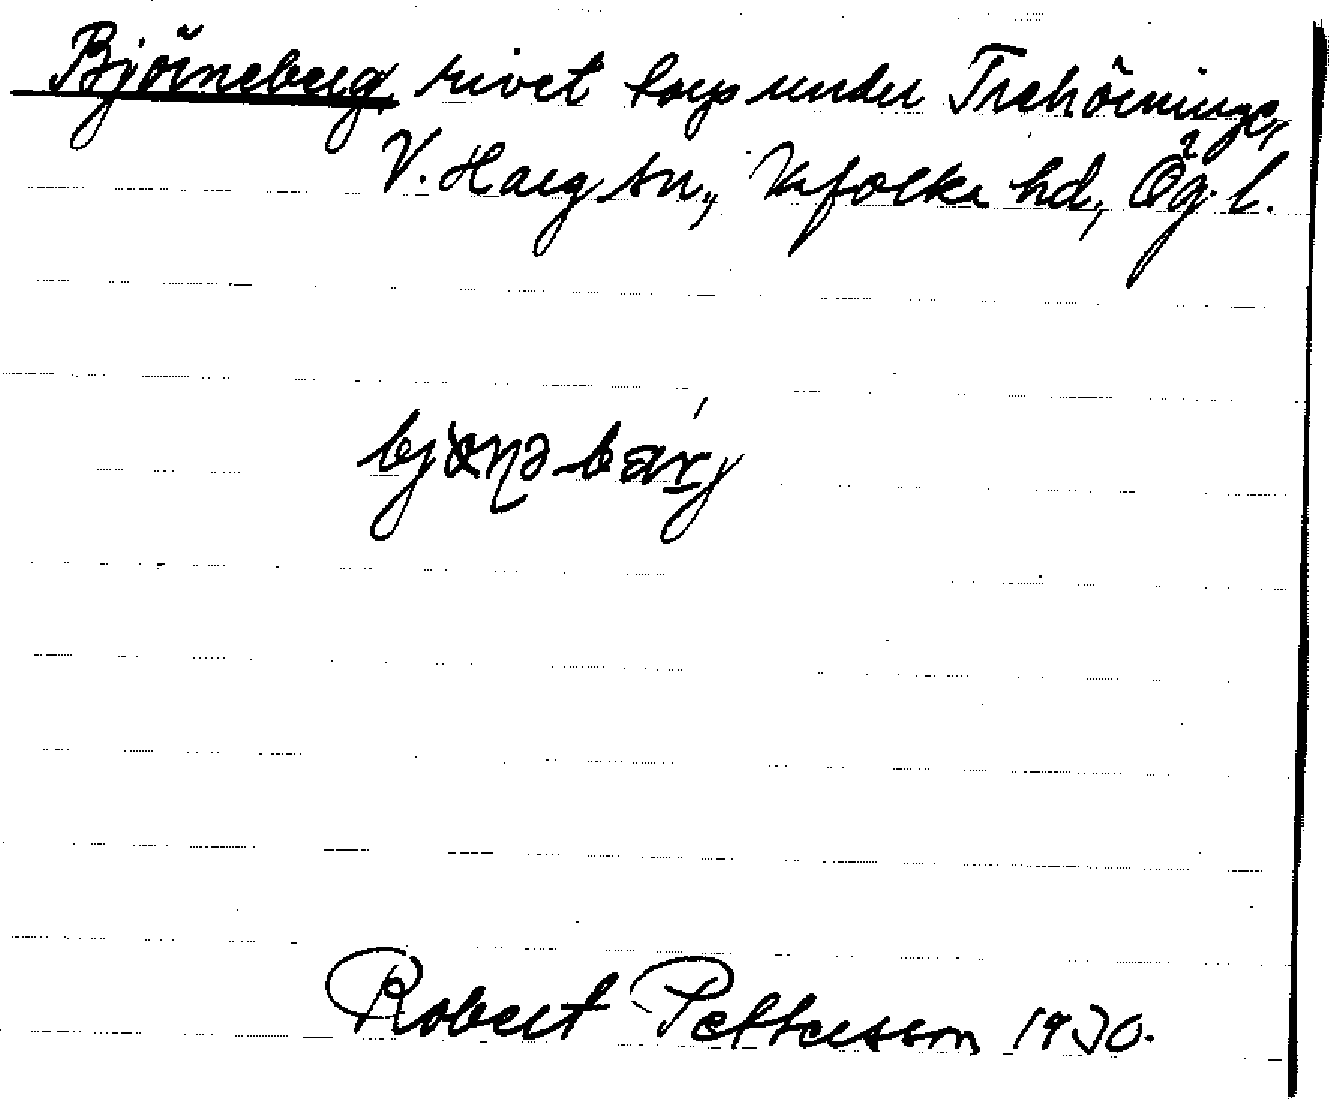 Björneberg, rivet torp under Trehörninge,
V. Harg sn., Vifolka hd, Ög. l.
bjönəbärj
Robert Pettersson 1930.